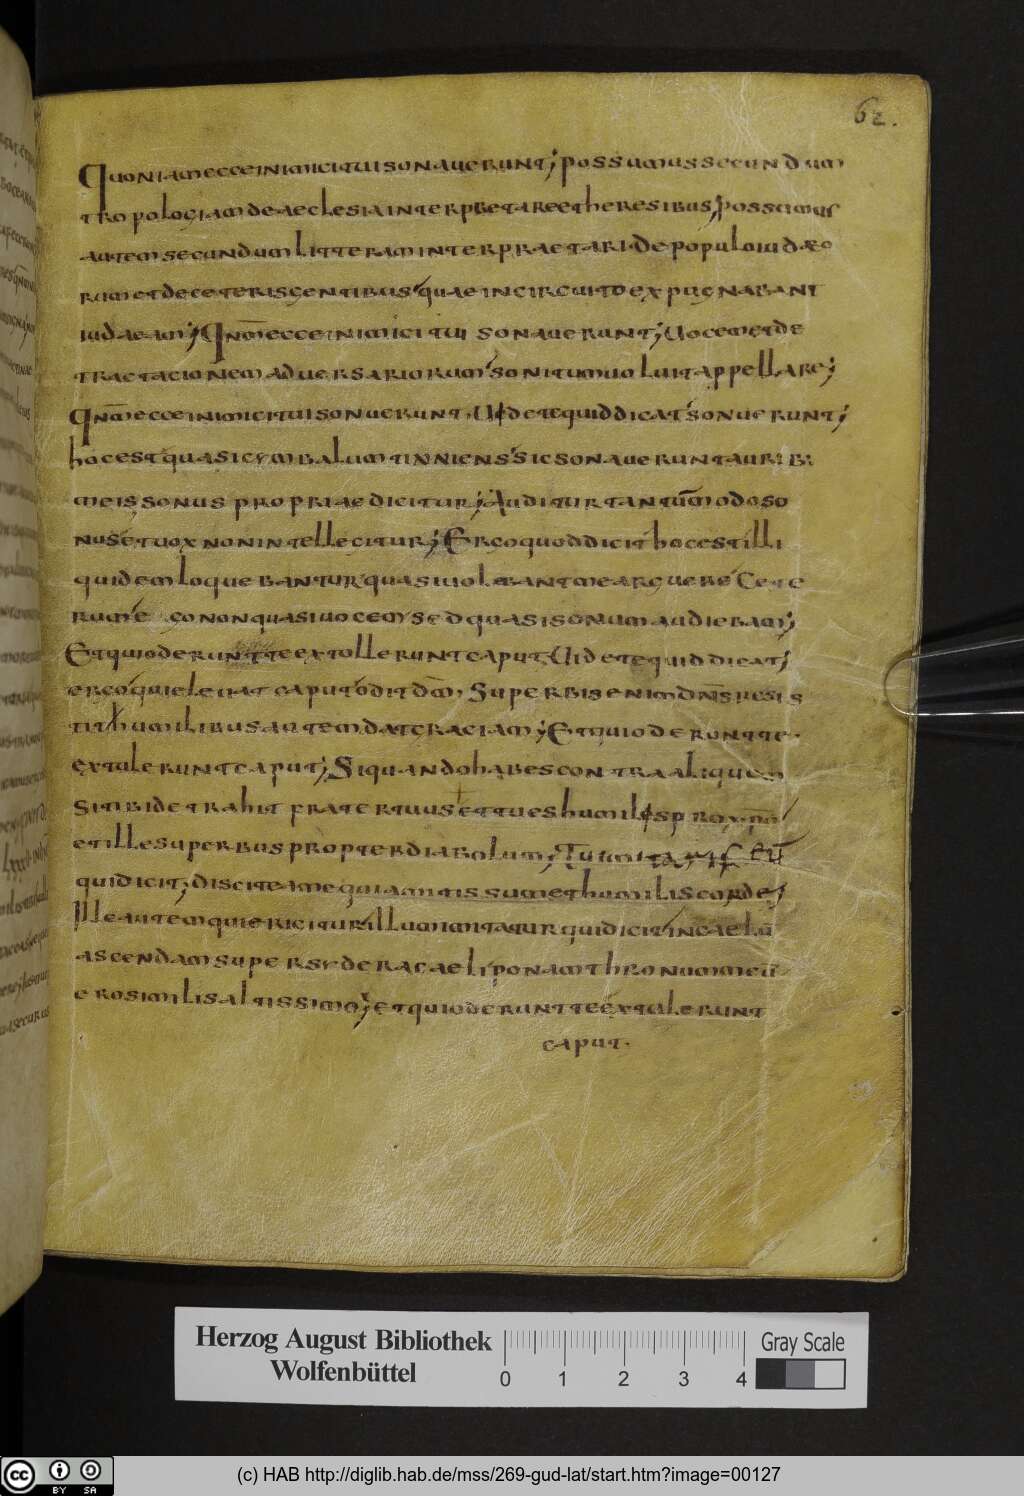 62.
Quoniam ecce inimici tui sonauerunt; possumus secundum
tropologiam de aeclesia interpretare et heresibus, possumus
autem secundum litteram interpraetari. de populo iudæo
rum et de ceteris gentibus quae in circuitu expugnabant
iudaeam; Qnm ecce inimici tui sonauerunt; Uocem et de
tractacionem aduersariorum sonitum uoluit appellare;
Qnm ecce inimici tui sonuerunt, Uidete quid dicat sonuerunt;
hoc est quasi cymbalum tinniens sic sonauerunt auribi
meis sonus propriae dicitur; Auditur tantummodo so
nus et uox non intellecitur; Ergo quod dicit hoc est illi
quidem loquebantur quasi uolebant me arguere Cete
rum ego non quasi uocem sed quasi sonum audiebam;
Et qui oderunt te extollerunt caput, Uidete quid dicat;
ergo qui eleuat caput odit dm, Superbis enim dns resis
tit humilibus autem dat graciam; Et qui oderunt te.
extulerunt caput; Siquando habes contra aliquem
si tibi detrahit frater tuus et tu es humilis prox pm
et ille superbus propter diabolum;
qui dicit; discite a me quia mitis sum et humilis corde;
Ille autem qui ericitur illum imitatur qui dicit in caelu
ascendam super sydera caeli ponam thronum meu
ero similis altissimo; et qui oderunt te extulerunt
caput.
Herzog August Bibliothek
Wolfenbüttel
0 1 2 3 4
Gray Scale
cc BY SA
(c) HAB http://diglib.hab.de/mss/269-gud-lat/start.htm?image=00127